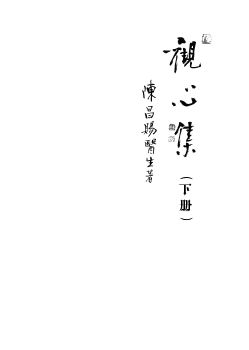 觀心集
（下册）
陳昌賜醫生著